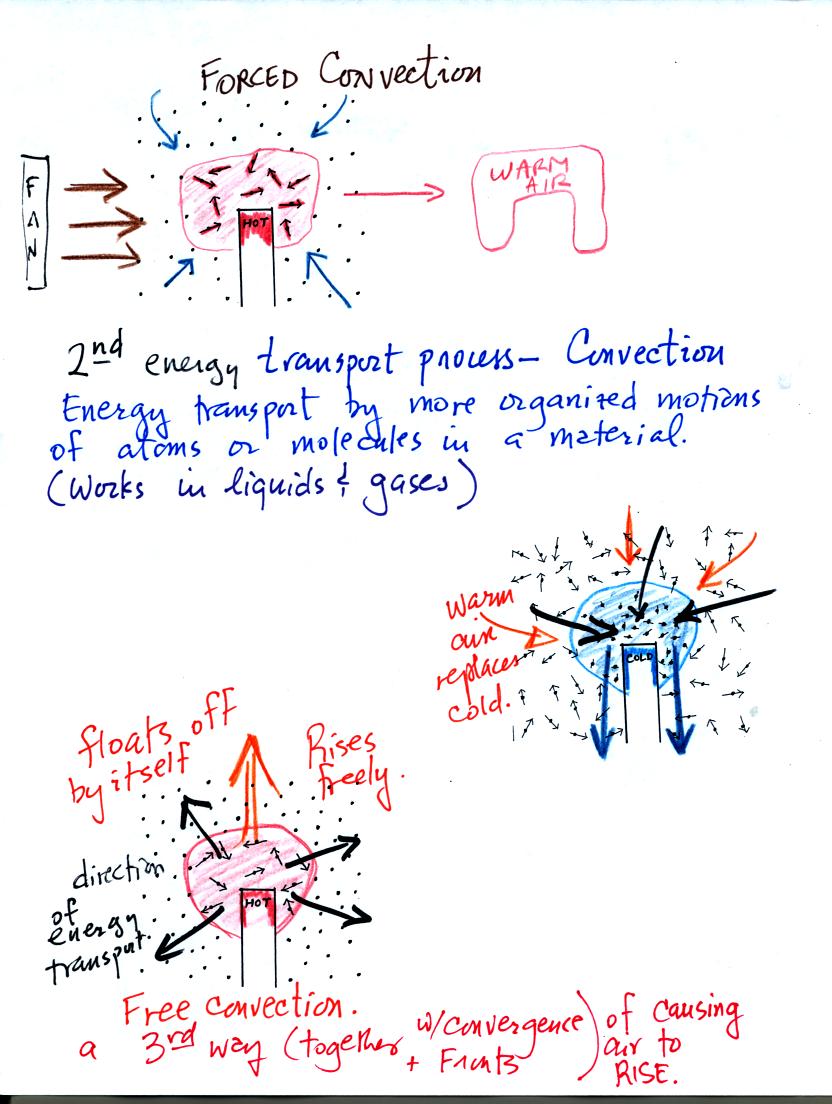 FORCED Convection
FAN
HOT
WARM
AIR
2nd energy transport process – Convection
Energy transport by more organized motions
of atoms or molecules in a material.
(Works in liquids & gases)
warm
air
replaces
cold.
COLD
floats off
by itself
Rises
freely.
direction
of
energy
transport.
HOT
Free convection.
a 3rd way (together w/convergence + Fronts) of causing
air to
RISE.